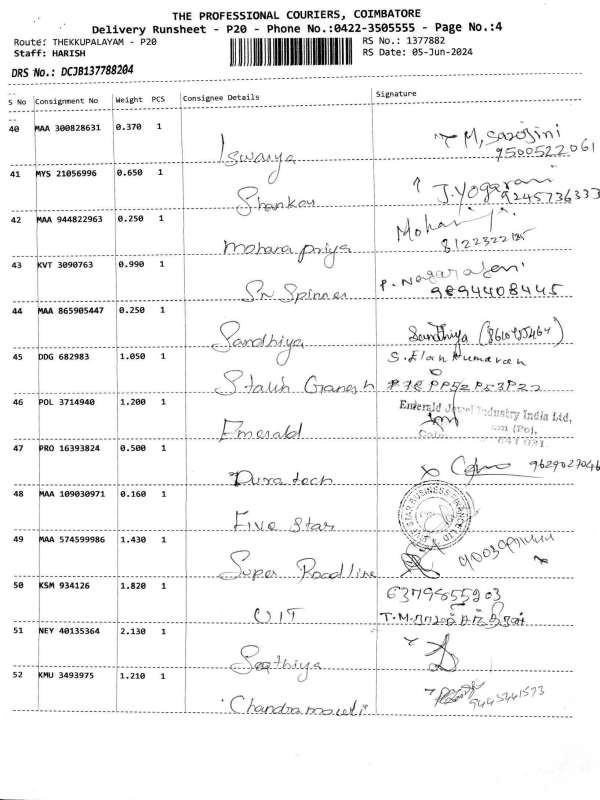 THE PROFESSIONAL COURIERS, COIMBATORE
Delivery Runsheet - P20 - Phone No.:0422-3505555 - Page No.:4
Route: THEKKUPALAYAM - P20
RS No.: 1377882
Staff: HARISH
RS Date: 05-Jun-2024
DRS No.: DCJB137788204
S No Consignment No Weight PCS Consignee Details Signature
40 MAA 300828631 0.370 1 Iswarya M, Sarojini
9500522061
41 MYS 21056996 0.650 1 Shankar J. Yogarani
9245736333
42 MAA 944822963 0.250 1 Mohana priya Mohan
43 KVT 3090763 0.990 1 Sri Spinner P. Nagarajani
9894408445
44 MAA 865905447 0.250 1 Sandhiya Sandhiya
45 DDG 682983 1.050 1 Stalin Ganesh S. Elan Kumaran
46 POL 3714940 1.200 1 Emerald Emerald Jewel Industry India Ltd,
641 021.
47 PRO 16393824 0.500 1 Dura tech 9629027046
48 MAA 109030971 0.160 1 Five Star
49 MAA 574599986 1.430 1 Super Roadline
50 KSM 934126 1.820 1 UIT 6379855203
51 NEY 40135364 2.130 1 Saathiya
52 KMU 3493975 1.210 1 Chandramouli 9445341573